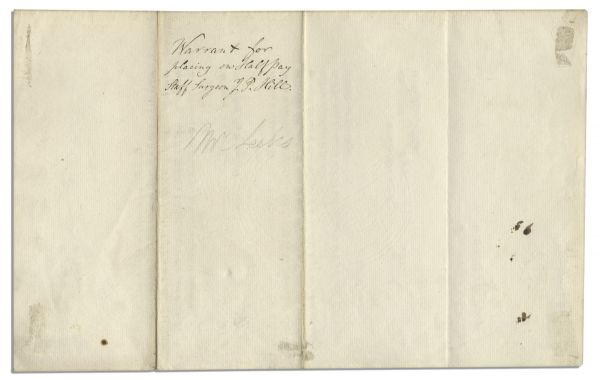 Warrant for
placing on Half Pay
Staff Surgeon J. P. Hill.
Mr